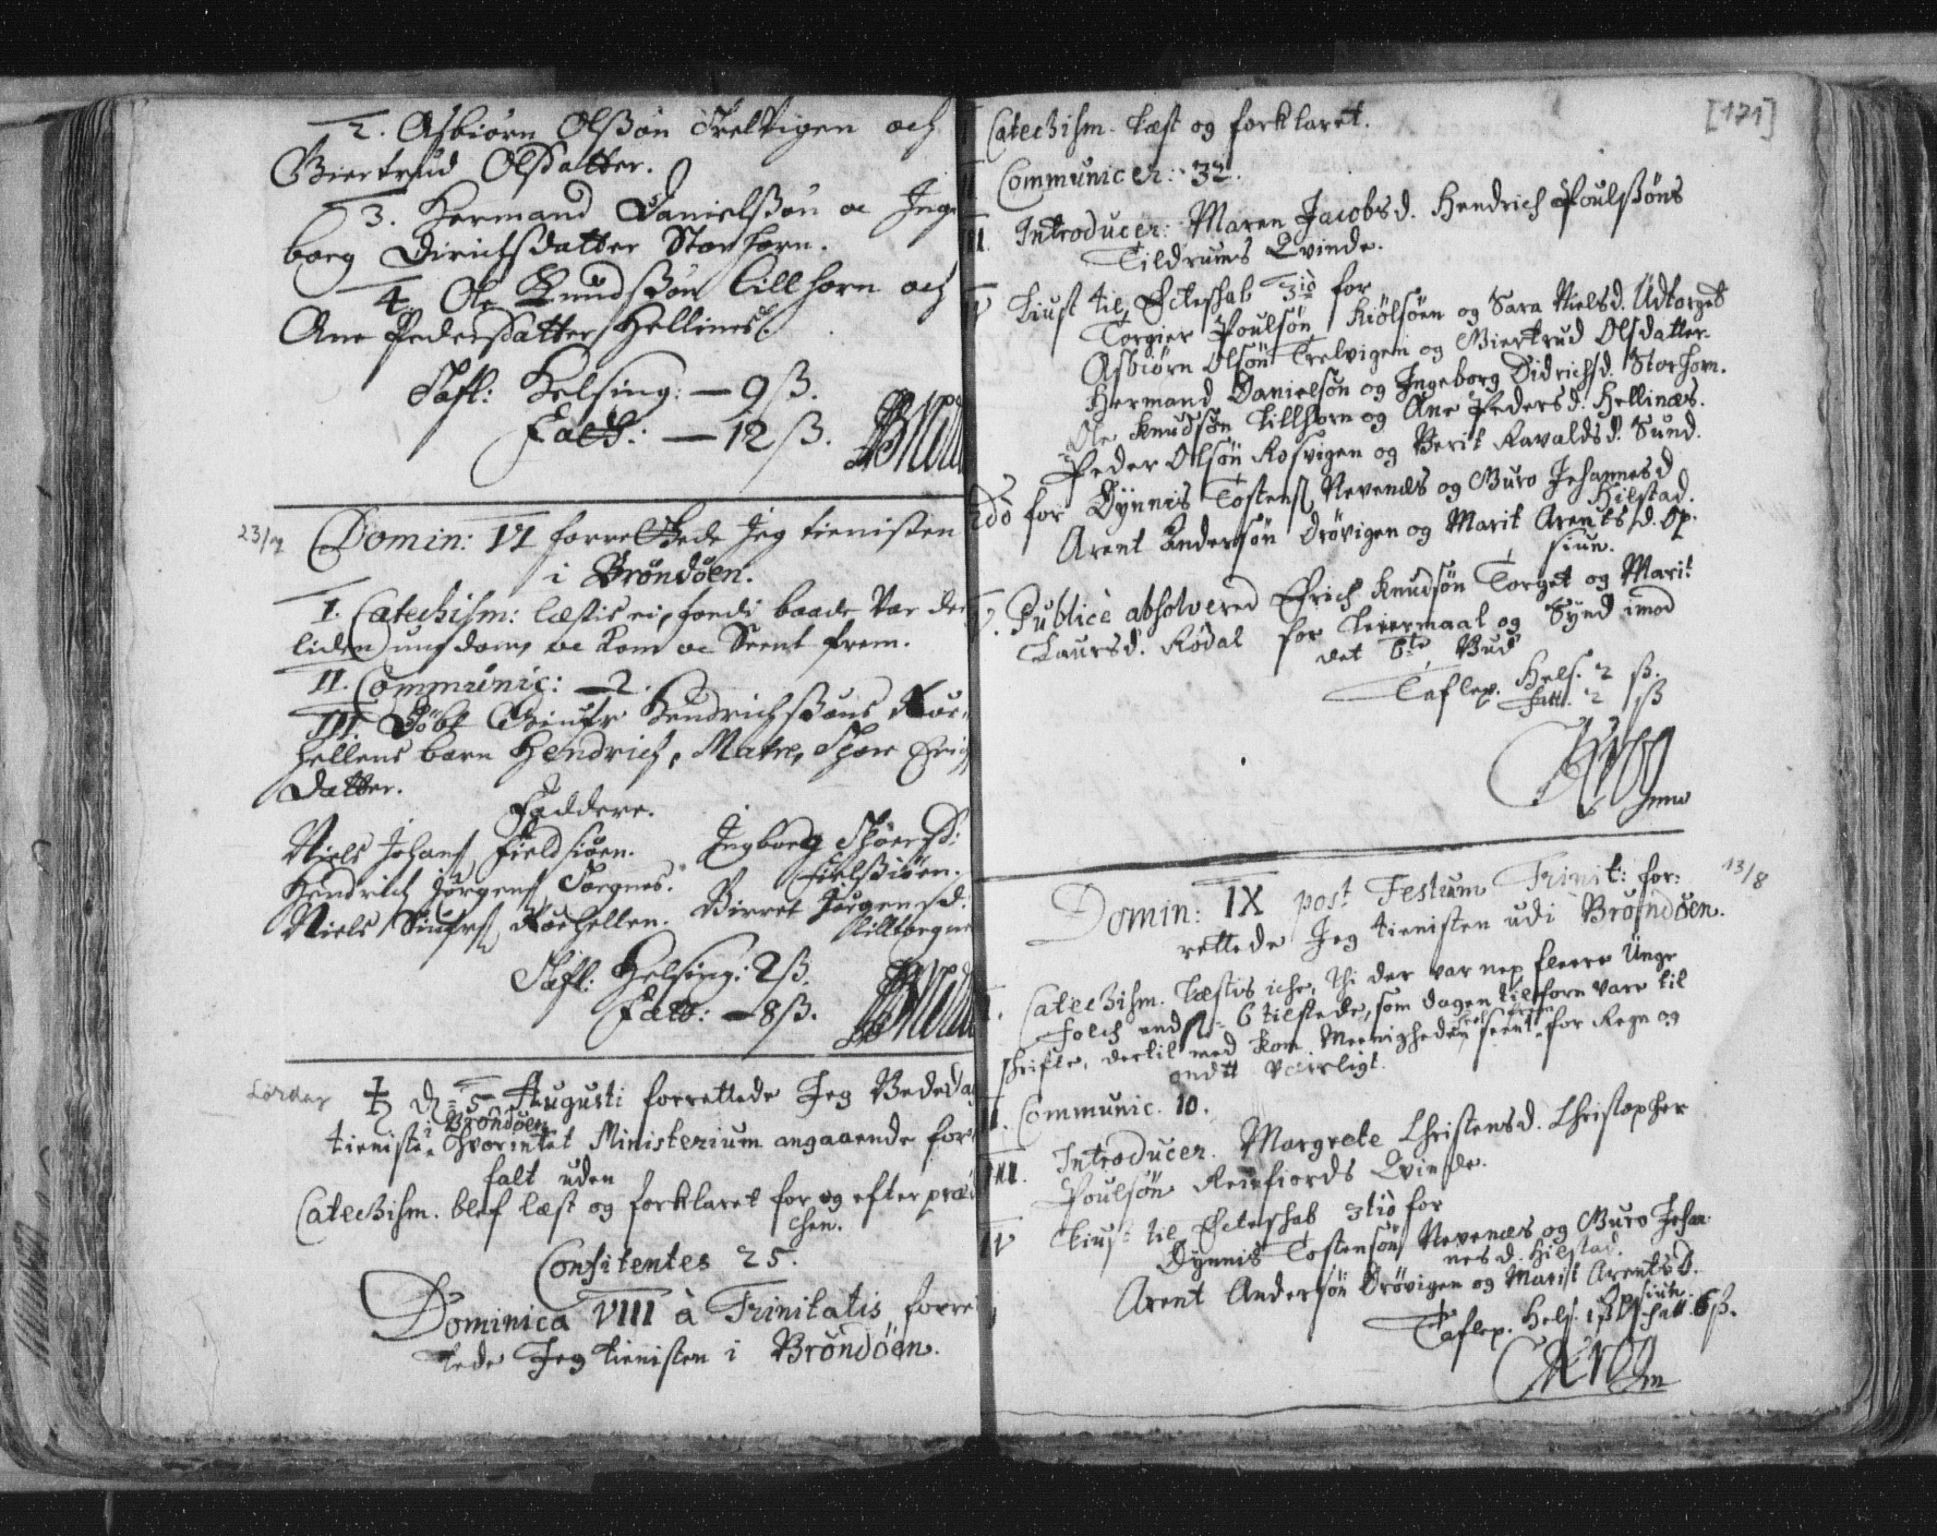 2. Asbiørn Olßøn Trelvigen och
Giertrud Olsdatter.
3. Hermand Danielßøn oc Inge
borg Dirichsdatter Storhorn.
4. Ole Knudßøn Lillhorn och
Ane Pedersdatter Hellines.
Tafl: Helsing: — 9 ß.
Fatt: — 12 ß.
23/7
Domin: VI forrettede Jeg tienisten
i Brøndøen.
I. Catechism: læstis ei, fordi baade var der
liden ungdom, oc kom oc Seent frem.
II. Communic: — 2.
III. Døbt Hendrichßøns
hellens barn Hendrich, Matre,
datter.
Faddere.
Niels Johans Fieldsiøen.
Ingborg
Fielsiøen.
Hendrich Jørgens Torgnes.
Birret Jørgensd.
Niels
Lilltorgnes
Tafl: Helsing: 2 ß.
Fatt: — 8 ß.
Lørdag
d. 5 Augusti forrettede Jeg Bededag
i Brøndøen
tieniste, hvor intet Ministerium angaaende for
falt uden
Catechism. blef læst og forklaret for og efter præd
chen.
Confitentes 25.
Dominica VIII à Trinitatis forret
tede Jeg tienisten i Brøndøen.
[171]
Catechism. læst og forklaret.
Communicer: 32.
III. Introducer: Maren Jacobsd. Hendrich Poulßøns
Tildrums Qvinde.
IV Liust til Ecteshab 3tiò for
Torgier Poulsøn Kiølsøen og Sara Nielsd. Udtorget
Asbiørn Olsøn Trelvigen og Giertrud Olsdatter.
Hermand Danielsøn og Ingeborg Didrichsd. Storhorn.
Ole Knudsøn Lillhorn og Ane Pedersd. Hellinæs.
Peder Olsøn Rosvigen og Berit Ravaldsd. Sund.
2dò for Dÿnnis Tostens. Nevenæs og Guro Johannesd
Hilstad.
Arent Andersøn Drøvigen og Marit Arentsd. Op-
siun.
V. Publicè absolvered Erich Knudsøn Torget og Marit
Laursd. Rødal for Leiermaal og Sÿnd imod
det 6te Bud
Taflep. Hels. 2 ß.
Fatt. 2 ß
13/8
Domin: IX post Festum Trinit: for-
rettede Jeg tienisten udi Brøndøen.
I. Catechism. Læstis iche, thi der var nep fleere Unge
folch end 6 tilstede, som dagen tilforn vare til
schrifte, dertil med kom Meenigheden seent for Regn og
ondtt Veirligt.
II. Communic. 10.
III. Introducer. Margrete Christensd. Christopher
Poulsøn Reinfiords Qvinde.
IV Liust til Ecteshab 3tiò for
Dÿnnis Tostensøn Nevenæs og Guro Johan-
nesd. Hilstad.
Arent Andersøn Drøvigen og Marit Arentsd.
Opsiun.
Taflep. Hels. 1 ß Fatt. 6 ß.